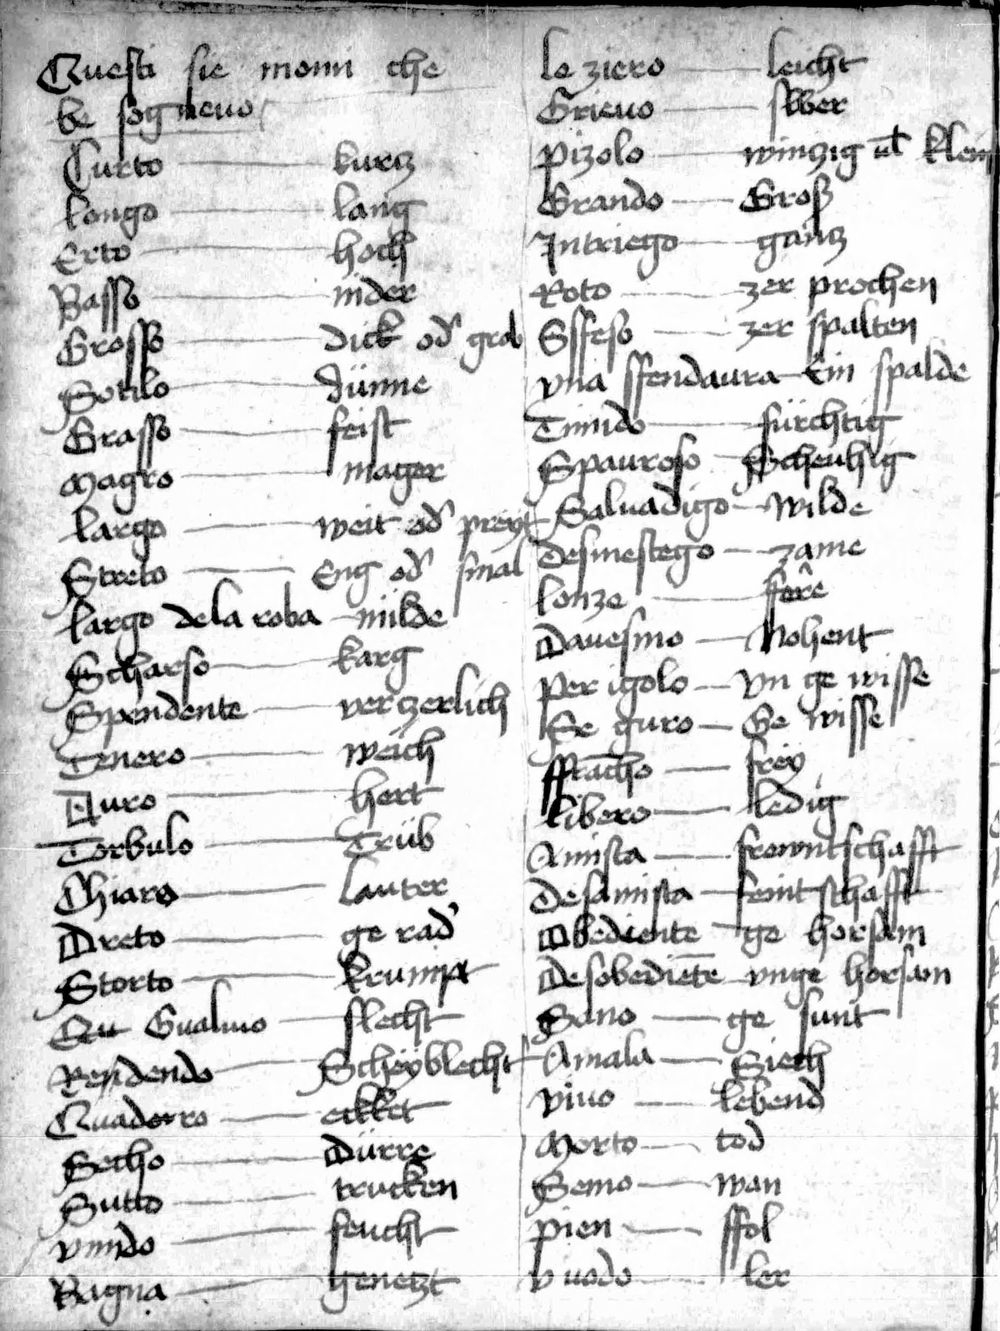 Questi sie nomi che
be sogneuo
Curto kurcz
Longo lang
Erto hoch
Basso nider
Grosso dick od' grob
Sotilo dünne
Grasso feist
Magro mager
Largo weit od' preyt
Streto Eng od' smal
Largo dela roba milde
Scharso karg
Spendente verczerlich
Tenero weich
Duro hert
Torbulo Trüb
Chiaro lauter
Dreto ge rad'
Storto krump
Gualiuo slecht
Redendo Scheyblecht
Quadorro eckket
Secho Dürre
Sutto trucken
vmido feucht
Bagna genetzt
Leziero leicht
Grieuo swer
Pizolo winczig kleyn
Grando Groß
Intriego gancz
Roto zer prochen
Sffeso zer spalten
vna sfendaura Ein spalde
Timido fürchtig
Spauroso Scheuhig
Saluadigo Wilde
Desmestego zame
Lonze ferre
Dauesino Nohent
Per igolo vn ge wisse
Se guro Ge wisse
ffrācho frey
Libero ledig
Amista frewntschafft
Desamista feintschafft
Obediente ge horsam
Desobediēte vnge horsam
Sano ge sunt
Amala Siech
viuo lebend
Morto tod
Semo wan
pien ffol
vuodo ler